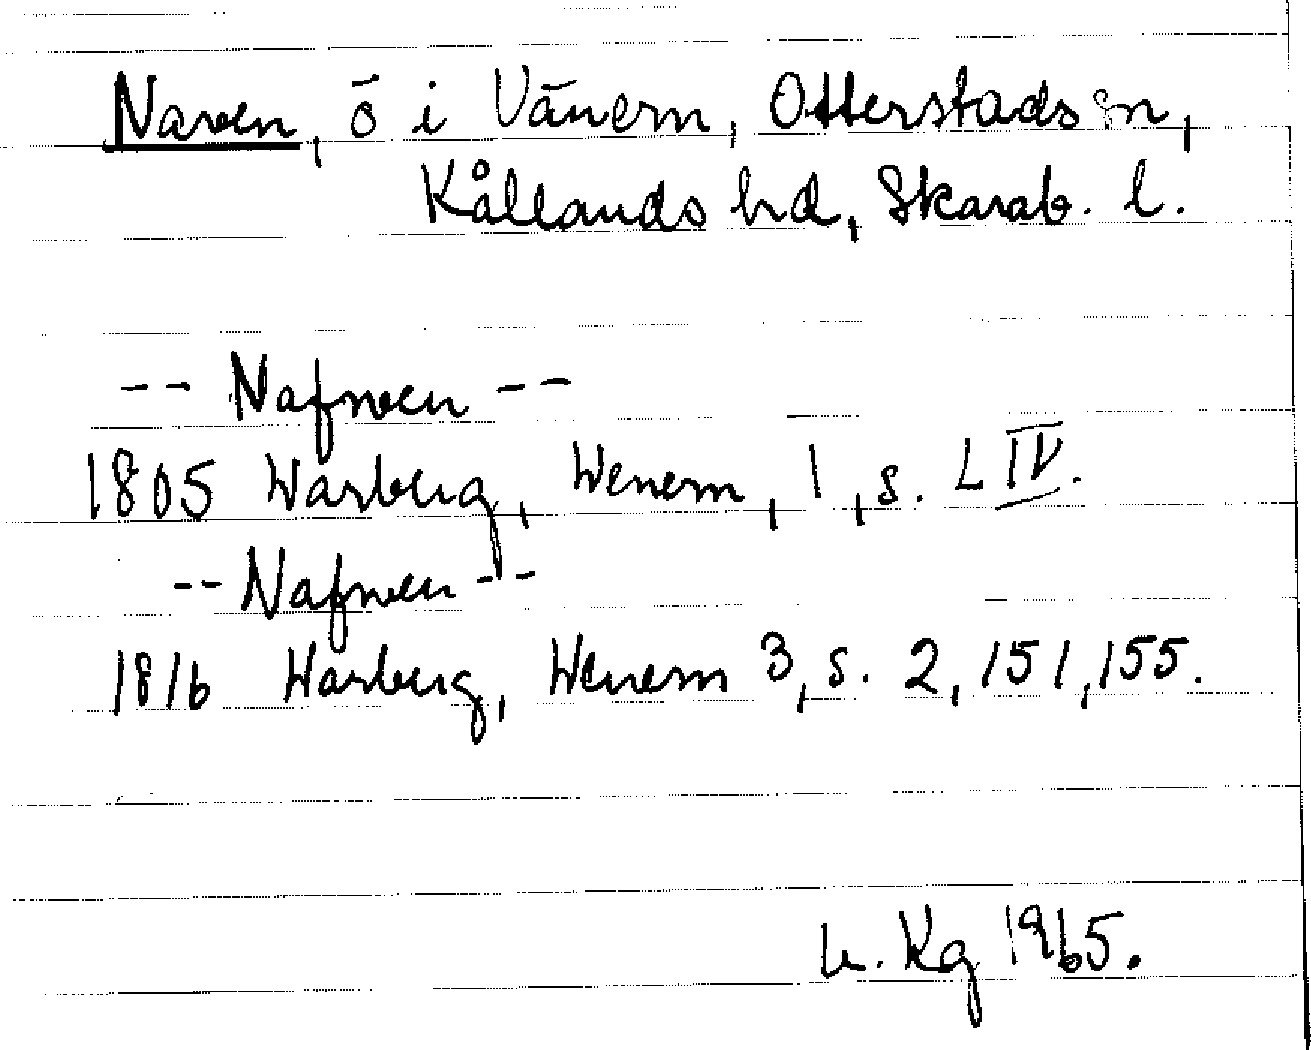 Naven, ö i Vänern, Otterstads sn,
Kållands hd, Skarab. l.
-- Nafwen --
1805 Warberg, Wenern, 1, s. LIV.
-- Nafwen --
1816 Warberg, Wenern 3, s. 2, 151, 155.
Kg 1965.